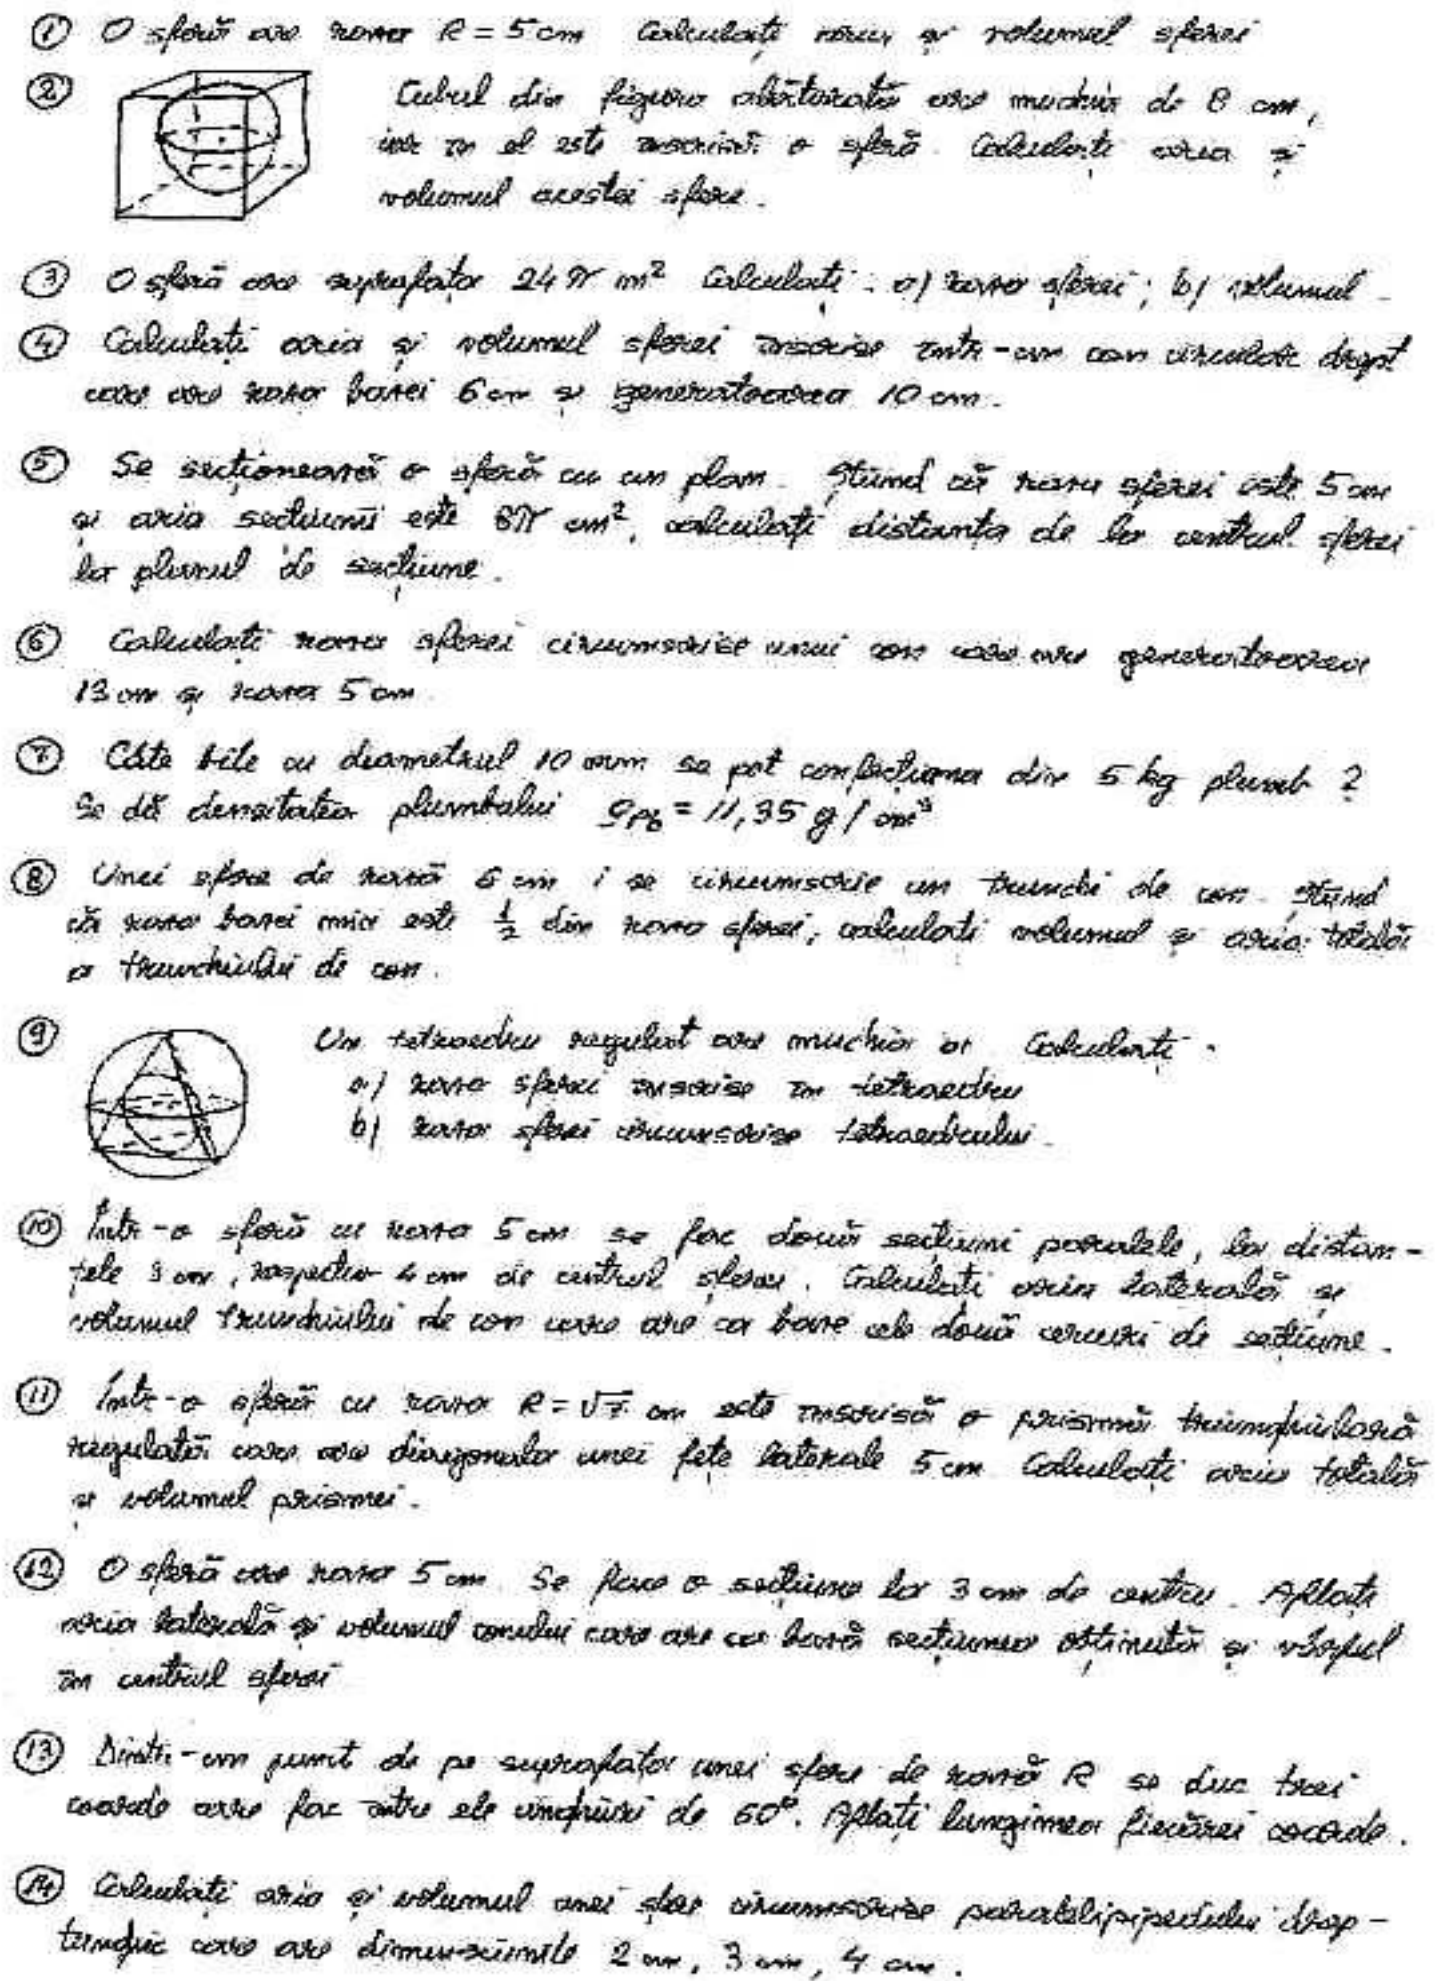 ① O sferă are raza R = 5 cm Calculați aria și volumul sferei
② Cubul din figura alăturată are muchia de 8 cm,
iar în el este înscrisă o sferă. Calculați aria și
volumul acestei sfere.
③ O sferă are suprafața 24 π m² Calculați: a) raza sferei; b) volumul.
④ Calculați aria și volumul sferei înscrise într-un con circular drept
care are raza bazei 6 cm și generatoarea 10 cm.
⑤ Se secționează o sferă cu un plan. Știind că raza sferei este 5 cm
și aria secțiunii este 8π cm², calculați distanța de la centrul sferei
la planul de secțiune.
⑥ Calculați raza sferei circumscrise unui con care are generatoarea
13 cm și raza 5 cm.
⑦ Câte bile cu diametrul 10 mm se pot confecționa din 5 kg plumb ?
Se dă densitatea plumbului ρPb = 11,35 g / cm³
⑧ Unei sfere de rază 6 cm i se circumscrie un trunchi de con. Știind
că raza bazei mici este 1/2 din raza sferei, calculați volumul și aria totală
a trunchiului de con.
⑨ Un tetraedru regulat are muchia a. Calculați:
a) raza sferei înscrise în tetraedru
b) raza sferei circumscrise tetraedrului.
⑩ Într-o sferă cu raza 5 cm se fac două secțiuni paralele, la distan-
țele 3 cm, respectiv 4 cm de centrul sferei. Calculați aria laterală și
volumul trunchiului de con care are ca baze cele două cercuri de secțiune.
⑪ Într-o sferă cu raza R = √7 cm este înscrisă o prismă triunghiulară
regulată care are diagonala unei fețe laterale 5 cm Calculați aria totală
și volumul prismei.
⑫ O sferă are raza 5 cm. Se face o secțiune la 3 cm de centru. Aflați
aria laterală și volumul conului care are ca bază secțiunea obținută și vârful
în centrul sferei
⑬ Dintr-un punct de pe suprafața unei sfere de rază R se duc trei
coarde care fac între ele unghiuri de 60°. Aflați lungimea fiecărei coarde.
⑭ Calculați aria și volumul unei sfere circumscrise paralelipipedului drep-
tunghic care are dimensiunile 2 cm, 3 cm, 4 cm.